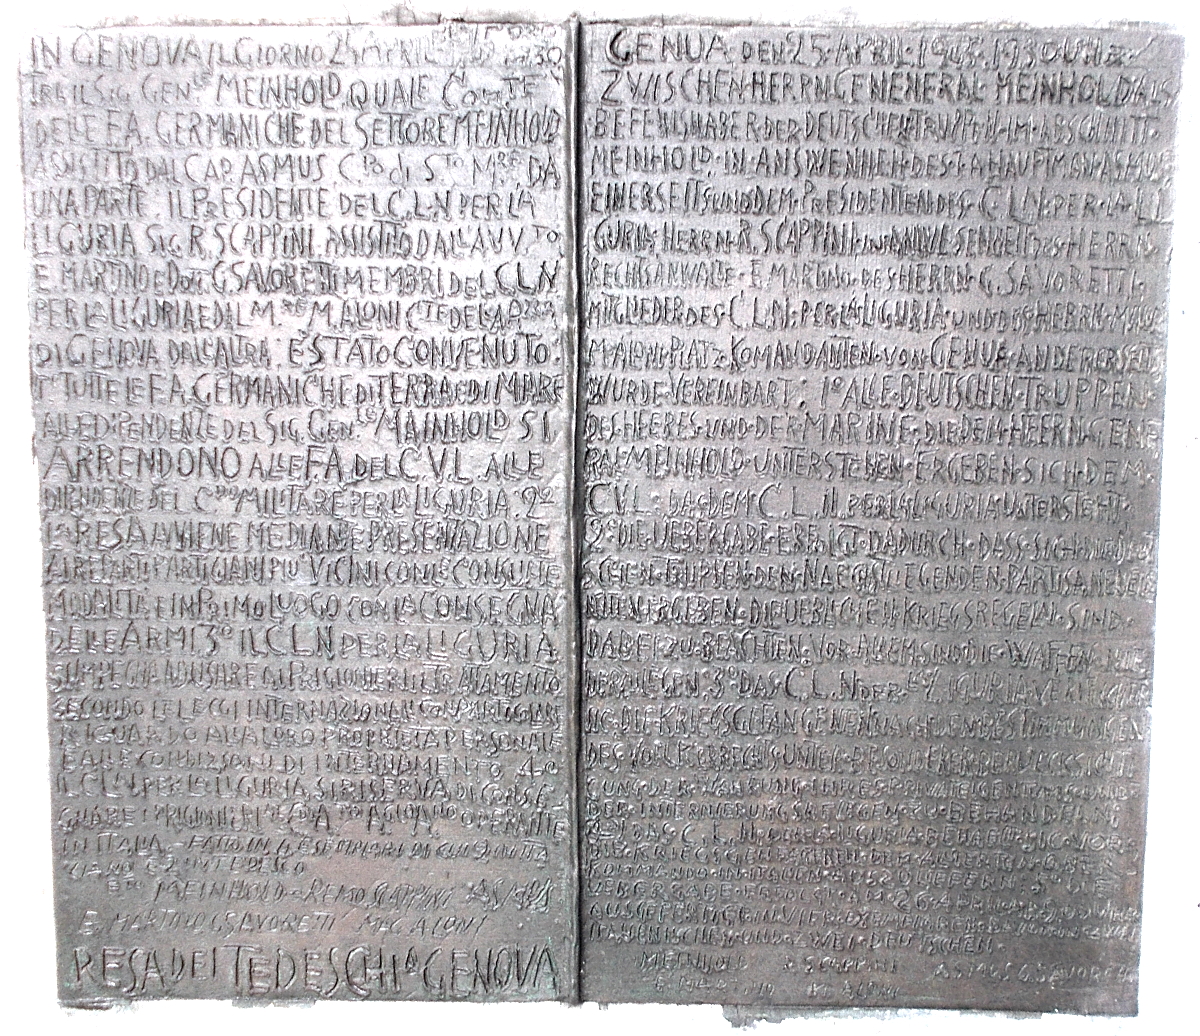 IN GENOVA IL GIORNO 25 APRIL 19.30
TRA IL SIG. GEN.LE MEINHOLD, QUALE COM.TE
DELLE F.A. GERMANICHE DEL SETTORE MEINHOLD
ASSISTITO DAL CAP. ASMUS C.PO di S.TO M.RE DA
UNA PARTE. IL PRESIDENTE DEL C.L.N PER LA
LIGURIA SIG. R. SCAPPINI. ASSISTITO DALL'AVV.TO
E. MARTINO E DOTT. G. SAVORETTI MEMBRI DEL CLN
PER LA LIGURIA E DAL M.RE M. ALONI C.TE DELLA PIAZZA
DI GENOVA DALL'ALTRA, E' STATO CONVENUTO:
1° TUTTE LE F.A. GERMANICHE DI TERRA E DI MARE
ALLE DIPENDENZE DEL SIG. GEN.LE MAINHOLD SI
ARRENDONO ALLE F.A. DEL C.V.L. ALLE
DIPENDENZE DEL C.DO MILITARE PER LA LIGURIA 2°
LA RESA AVVIENE MEDIANTE PRESENTAZIONE
AI REPARTI PARTIGIANI PIU' VICINI CON LE CONSUETE
MODALITA' E IN PRIMO LUOGO CON LA CONSEGNA
DELLE ARMI 3° IL CLN PER LA LIGURIA
SI IMPEGNA AD USARE AI PRIGIONIERI IL TRATTAMENTO
SECONDO LE LEGGI INTERNAZIONALI CON PARTICOLARE
RIGUARDO ALLA LORO PROPRIETA' PERSONALE
E ALLE CONDIZIONI DI INTERNAMENTO 4°
IL CLN PER LA LIGURIA SI RISERVA DI CONSE-
GNARE I PRIGIONIERI OPERANTE
IN ITALIA. - FATTO IN 4 ESEMPLARI DI CUI 2 IN ITA
LIANO E 2 IN TEDESCO
MEINHOLD - REMO SCAPPINI ASMUS
E. MARTINO G SAVORETTI M ALONI
RESA DEI TEDESCHI A GENOVA
GENUA DEN 25. APRIL. 19.30 UHR
ZWISCHEN HERRN GENENERAL MEINHOLD ALS
BEFEHLSHABER DER DEUTSCHEN TRUPPEN IM ABSCHNITT
MEINHOLD. IN DES HAUPTMAN ASMUS
EINERSEITS UND DEM PRESIDENTEN DES C.L.N. PER LA LI
GURIA HERRN R. SCAPPINI IN DES HERRN
RECHTSANWALTE E. MARTINO DES HERRN G. SAVORETTI
MITGLIEDER DES C.L.N. PER LA LIGURIA UND DES HERRN
M. ALONI PLATZ KOMAUDANTEN VON GENUA ANDERERSEITS
WURDE VEREINBART: 1° ALLE DEUTSCHEN TRUPPEN
DES HEERES UND DER MARINE, DIE DEM HEERN GENE
RAL MEINHOLD UNTERSTEHEN ERGEBEN SICH DEM
CVL. DAS DEM C.L.N. PER LA LIGURIA UNTERSTEHT
2° DIE UEBERGABE ERFOLGT DADURCH DASS SICH DIE DEUT
SCHEN TRUPPEN DEN NAECHSTLIEGENDEN PARTISANEN
ERGEBEN. DIE UEBLICHEN KRIEGSREGELN SIND
DABEI ZU BEACHTEN. VOR ALLEM SIND DIE WAFFEN NIE
DERZULEGEN 3° DAS C.L.N DER LIGURIA
DIE KRIEGSGEFANGENEN NACH DEN BESTIMMUNGEN
DES VOELKERRECHTS UNTER BESONDERER BERUECKSICHTI
GUNG DER WAHRUNG IHRES PRIVATEIGENTUMS UND
DER INTERNIERUNG ZU BEHANDELN
DAS C.L.N. LIGURIA VOR
DIE KRIEGSGEFANGENEN DEM
KOMMANDO IN ITALIEN
UEBERGABE ERFOLGT AM 26 APRIL
AUSGEFERTIGT IN VIER
ITALIENISCHEN UND ZWEI DEUTSCHEN.
MEINHOLD R SCAPPINI ASMUS G. SAVORETTI
E. MARTINO M ALONI